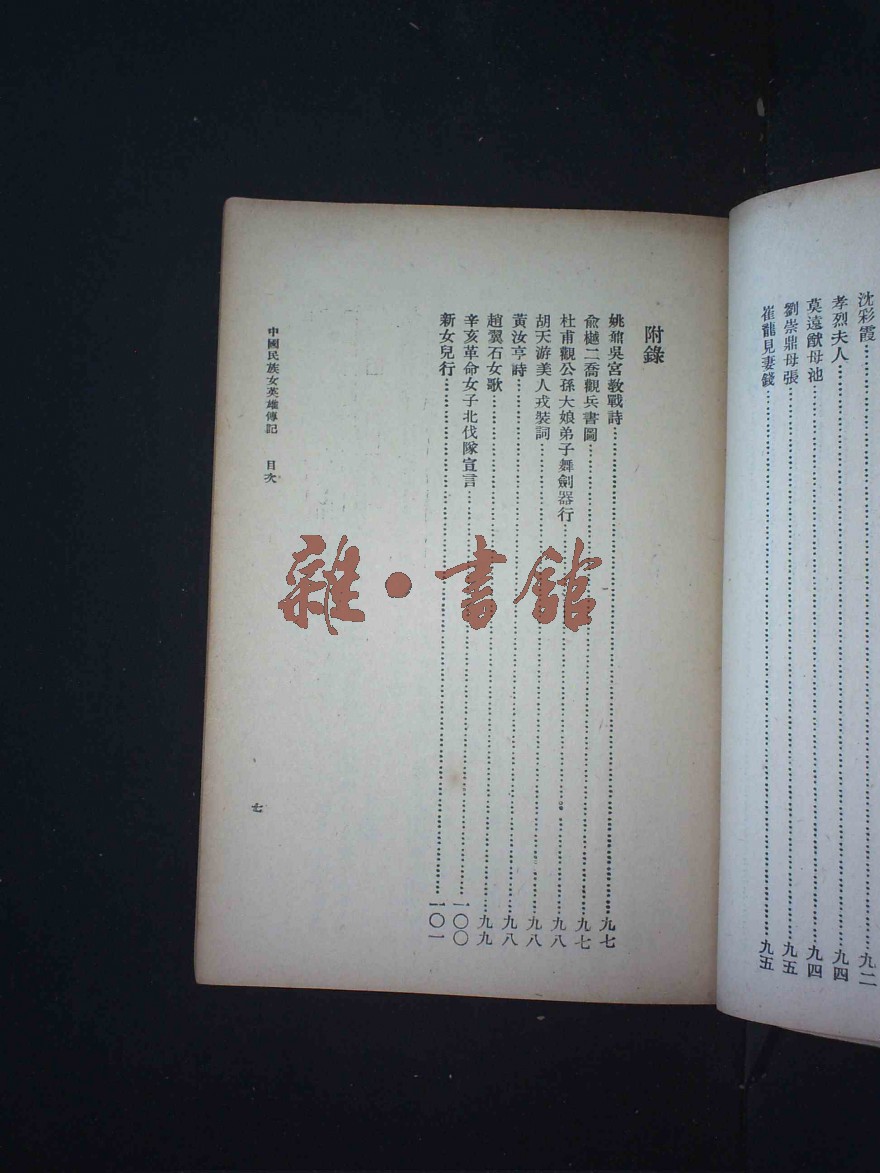 沈彩霞…九二
孝烈夫人…九四
莫遠猷母池…九四
劉崇鼎母張…九五
崔龍見妻錢…九五
附錄
姚鼐吳宮教戰詩…九七
俞樾二喬觀兵書圖…九七
杜甫觀公孫大娘弟子舞劍器行…九八
胡天游美人戎裝詞…九八
黃汝亨詩…九八
趙翼石女歌…九九
辛亥革命女子北伐隊宣言…一〇〇
新女兒行…一〇一
中國民族女英雄傳記 目次
七
雜·書館